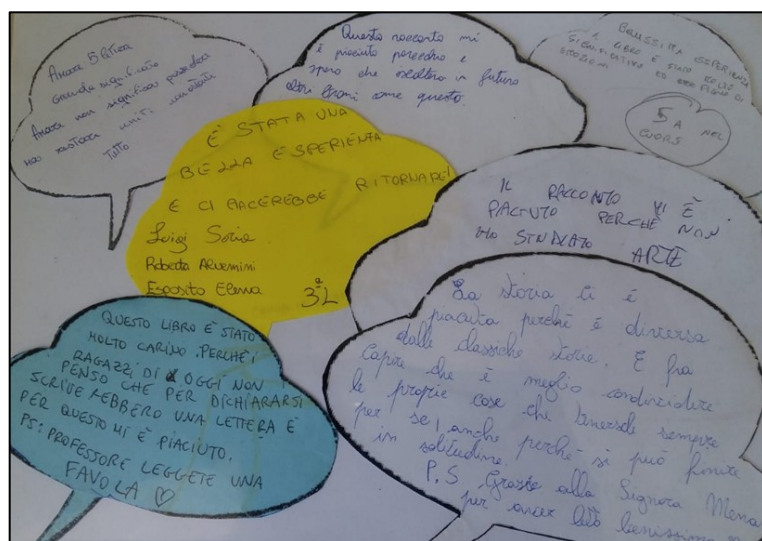 Amare 5 lettere
grande significato
Amare non significa possedere
ma restare uniti
tutto
Questo racconto mi
è piaciuto parecchio e
spero che usciltro in futuro
altri brani come questo.
BELLISSIMA ESPERIENZA
IL LIBRO È STATO BELLO
SIGNIFICATIVO ED
EMOZIONI
5A NEL
CUORE
È STATA UNA
BELLA ESPERIENZA
E CI PIACEREBBE RITORNARE!
Luigi Soria
Roberta Arvemini
Esposito Elena 3ªL
IL RACCONTO MI È
PIACIUTO PERCHÈ NON
HO STUDIATO ARTE
QUESTO LIBRO È STATO
MOLTO CARINO. PERCHÈ I
RAGAZZI DI OGGI NON
PENSO CHE PER DICHIARARSI
SCRIVEREBBERO UNA LETTERA E
PER QUESTO MI È PIACIUTO.
PS: PROFESSORE LEGGETE UNA
FAVOLA ♡
La storia ci è
piaciuta perchè è diversa
dalle classiche storie. E fa
capire che è meglio condividere
le proprie cose che tenersele sempre
per se, anche perchè si può finire
in solitudine.
P.S Grazie alla Signora Mena
per aver letto benissimo